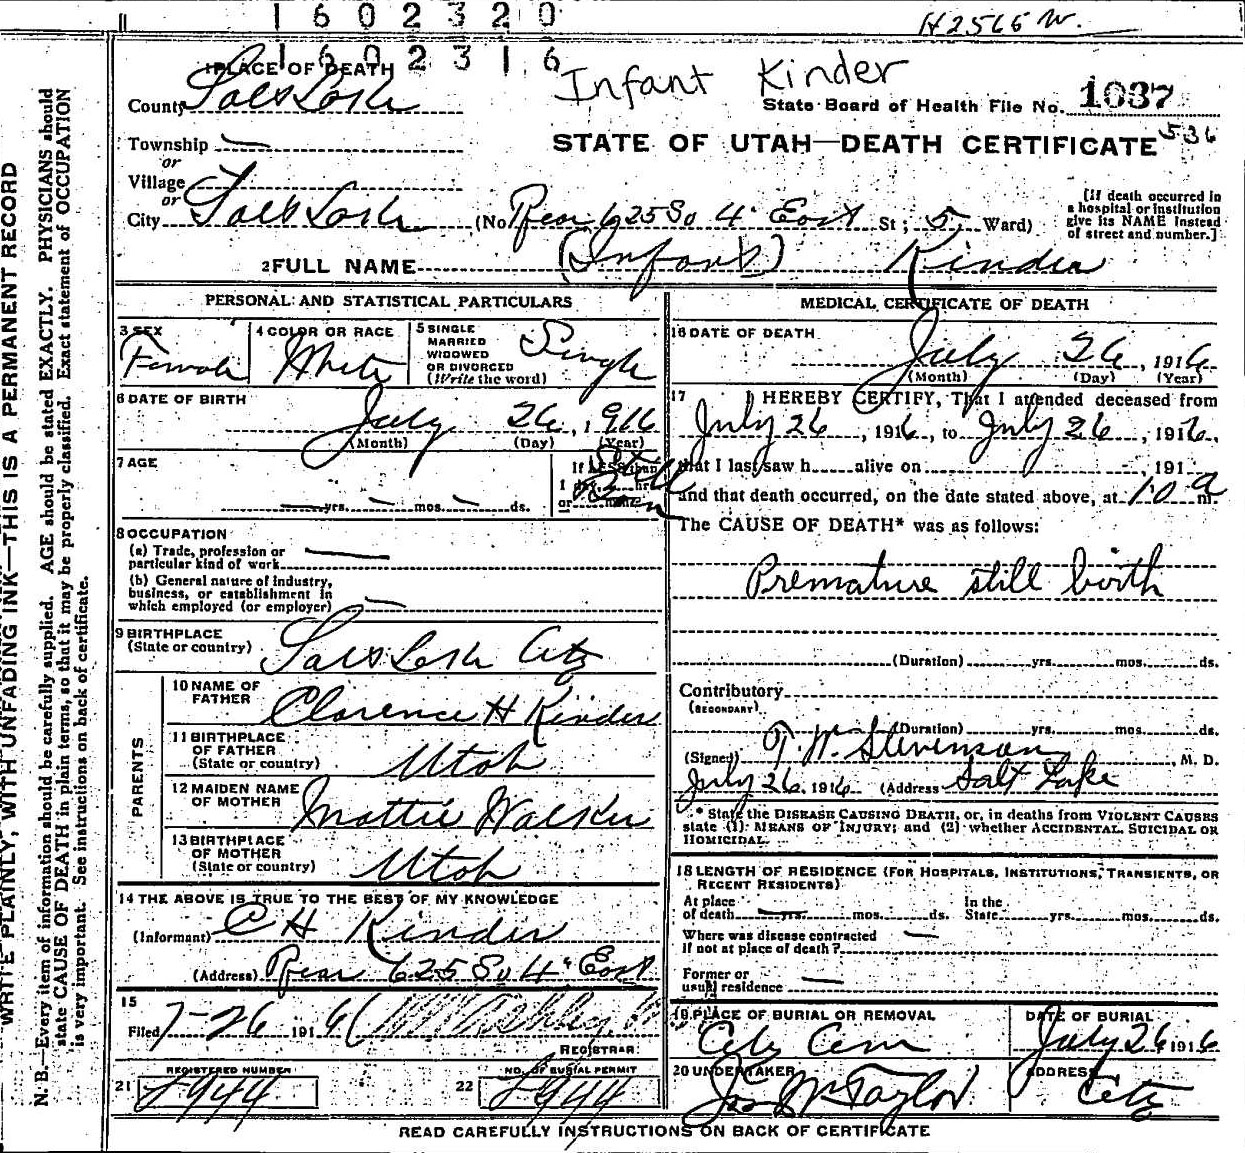 1602320
H2566 W.
1602316
Infant Kinder
1 PLACE OF DEATH
County Salt Lake
State Board of Health File No. 1037
536
STATE OF UTAH—DEATH CERTIFICATE
Township —
or
Village —
or
City Salt Lake (No Rear 625 So 4" East St; 5 Ward)
[If death occurred in a hospital or institution give its NAME instead of street and number.]
2 FULL NAME (Infant) Kinder
PERSONAL AND STATISTICAL PARTICULARS
3 SEX
Female
4 COLOR OR RACE
White
5 SINGLE MARRIED WIDOWED OR DIVORCED (Write the word)
Single
6 DATE OF BIRTH
July 26, 1916
(Month) (Day) (Year)
7 AGE
— yrs. — mos. — ds.
If LESS than 1 day, hrs. or min.
Still Born
8 OCCUPATION
(a) Trade, profession or particular kind of work —
(b) General nature of industry, business, or establishment in which employed (or employer) —
9 BIRTHPLACE
(State or country) Salt Lake City
PARENTS
10 NAME OF FATHER Clarence H Kinder
11 BIRTHPLACE OF FATHER (State or country) Utah
12 MAIDEN NAME OF MOTHER Mattie Walker
13 BIRTHPLACE OF MOTHER (State or country) Utah
14 THE ABOVE IS TRUE TO THE BEST OF MY KNOWLEDGE
(Informant) C H Kinder
(Address) Rear 625 So 4" East
15
Filed 7-26 1916
REGISTRAR
REGISTERED NUMBER
21 J944
NO. OF BURIAL PERMIT
22 J944
MEDICAL CERTIFICATE OF DEATH
16 DATE OF DEATH
July 26, 1916
(Month) (Day) (Year)
17 I HEREBY CERTIFY, That I attended deceased from
July 26, 1916, to July 26, 1916,
that I last saw h alive on , 191
and that death occurred, on the date stated above, at 10 a m.
The CAUSE OF DEATH* was as follows:
Premature still birth
(Duration) yrs. mos. ds.
Contributory
(SECONDARY)
(Duration) yrs. mos. ds.
(Signed) T. W. Stevenson, M. D.
July 26, 1916 (Address Salt Lake
* State the DISEASE CAUSING DEATH, or, in deaths from VIOLENT CAUSES
state (1) MEANS OF INJURY; and (2) whether ACCIDENTAL, SUICIDAL OR
HOMICIDAL.
18 LENGTH OF RESIDENCE (FOR HOSPITALS, INSTITUTIONS, TRANSIENTS, OR
RECENT RESIDENTS)
At place of death — yrs. mos. ds. In the State yrs. mos. ds.
Where was disease contracted
if not at place of death? —
Former or
usual residence —
19 PLACE OF BURIAL OR REMOVAL
City Cem
DATE OF BURIAL
July 26, 1916
20 UNDERTAKER
Jos Wm Taylor
ADDRESS
City
READ CAREFULLY INSTRUCTIONS ON BACK OF CERTIFICATE
WRITE PLAINLY, WITH UNFADING INK—THIS IS A PERMANENT RECORD
N. B.—Every item of information should be carefully supplied. AGE should be stated EXACTLY. PHYSICIANS should
state CAUSE OF DEATH in plain terms, so that it may be properly classified. Exact statement of OCCUPATION
is very important. See instructions on back of certificate.